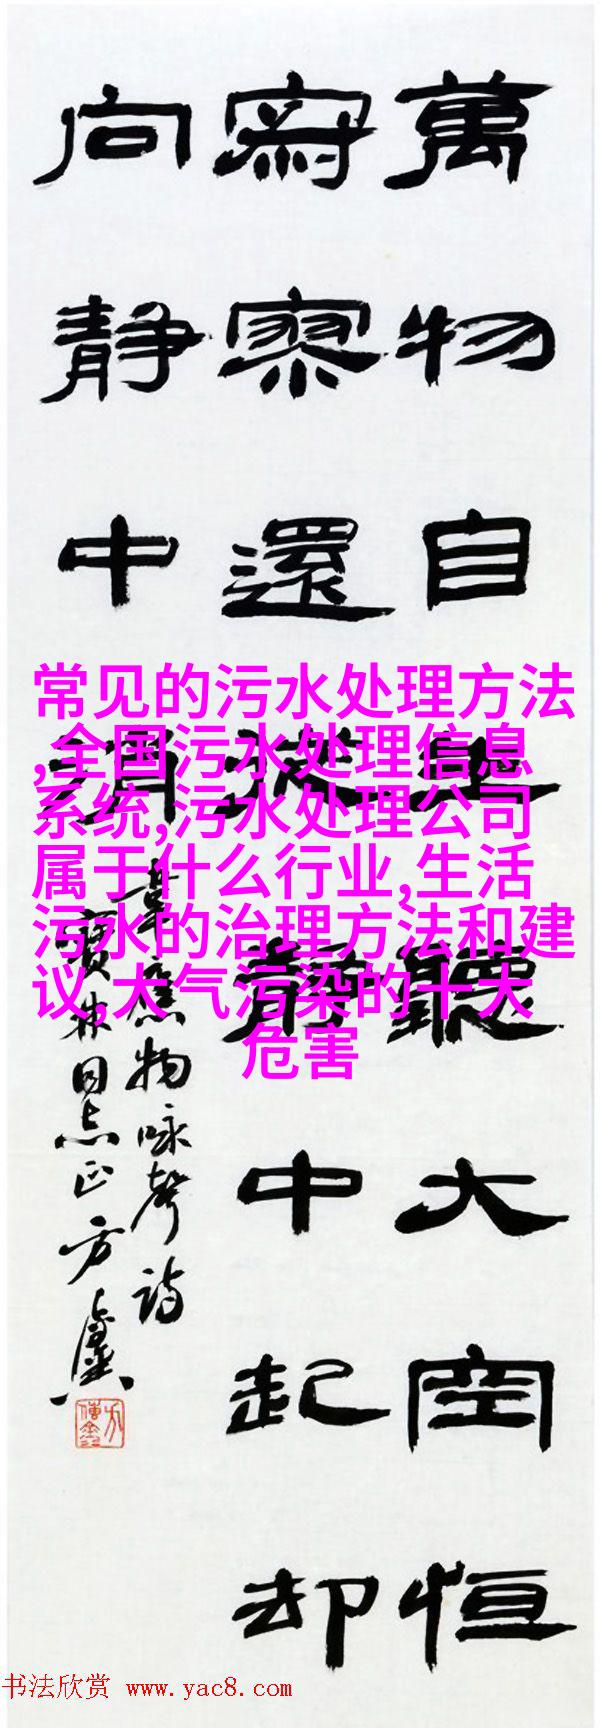 萬物自生聽大空恒
寂寥還從静中起却
向静中消
韋應物咏聲詩
同志正 方
常见的污水处理方法
,全国污水处理信息
系统,污水处理公司
属于什么行业,生活
污水的治理方法和建
议,大气污染的十大
危害
书法欣赏 www.yac8.com